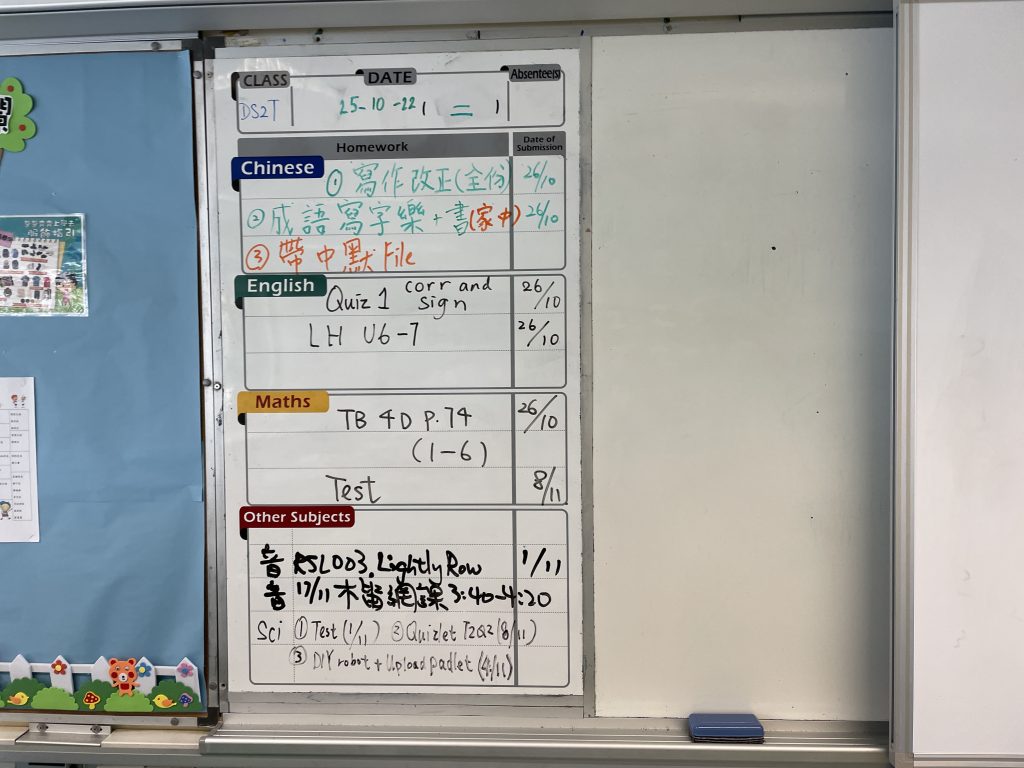 買
服飾指引
CLASS DATE Absentee(s)
DS2T 25-10-22 ( 二 )
Homework Date of Submission
Chinese ① 寫作改正(全份) 26/10
② 成語寫字樂 + 書(家中) 26/10
③ 帶中默 File
English Quiz 1 corr and sign 26/10
LH U6-7 26/10
Maths TB 4D P.74 26/10
(1-6)
Test 8/11
Other Subjects
音 RSL003. Lightly Row 1/11
音 17/11 木笛網課 3:40-4:20
Sci ① Test (1/11) ② Quizlet T2Q2 (8/11)
③ DIY robot + Upload padlet (4/11)